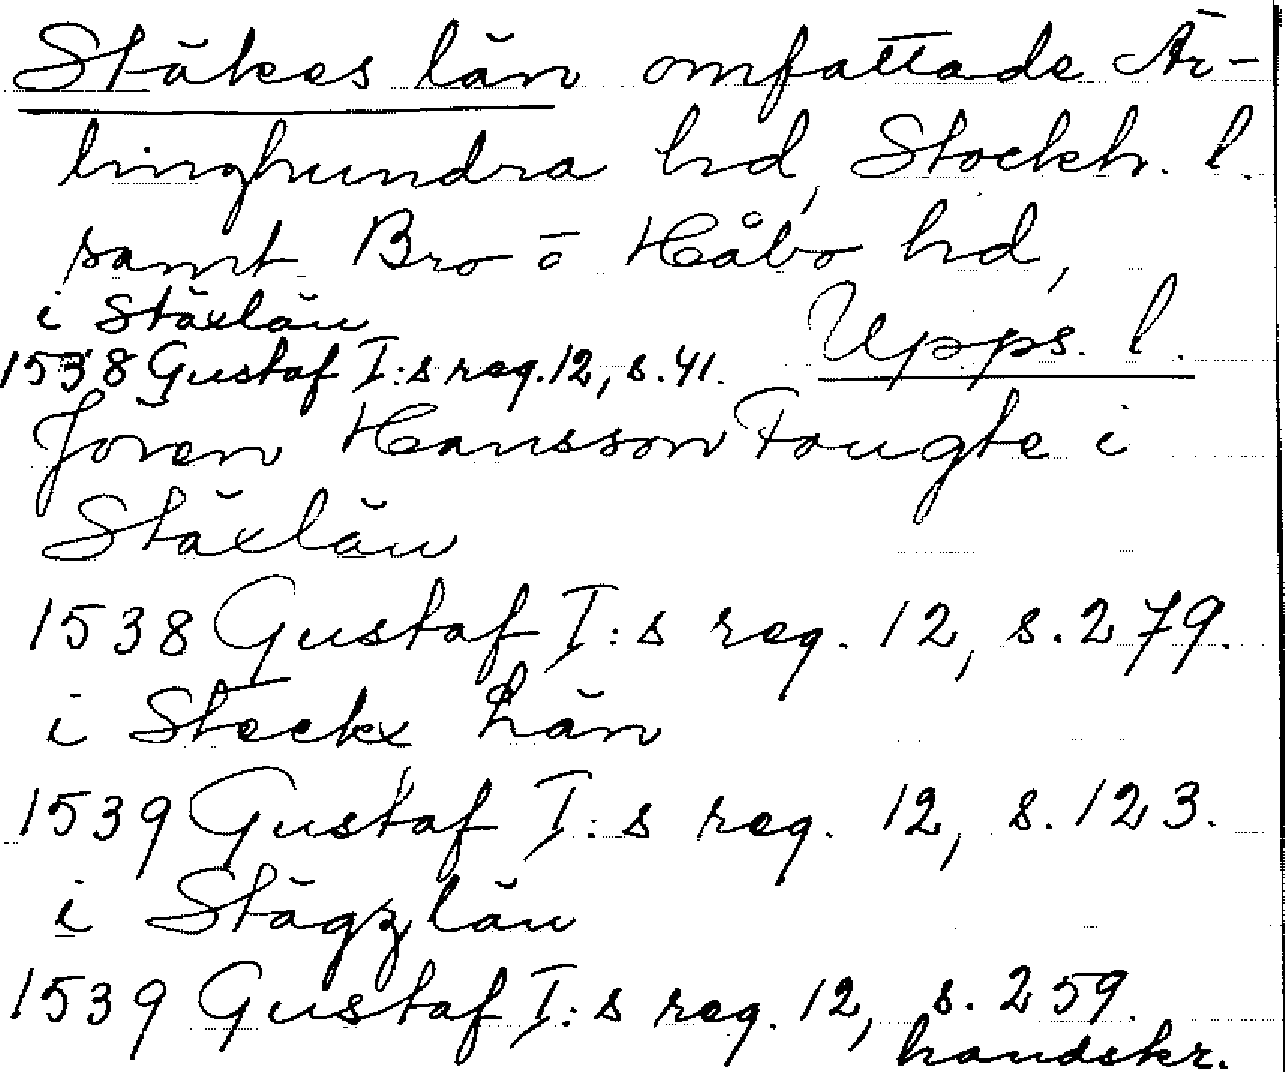 Stäkes län omfattade Är-
linghundra hd, Stockh. l.
samt Bro o Håbo hd,
i Stäxlän
Upps. l.
1538 Gustaf I:s reg. 12, s. 41.
Jören Hansson Fougte i
Stäxlän
1538 Gustaf I:s reg. 12, s. 279.
i Steckx Län
1539 Gustaf I:s reg. 12, s. 123.
i Stägzlän
1539 Gustaf I:s reg. 12, s. 259.
handskr.